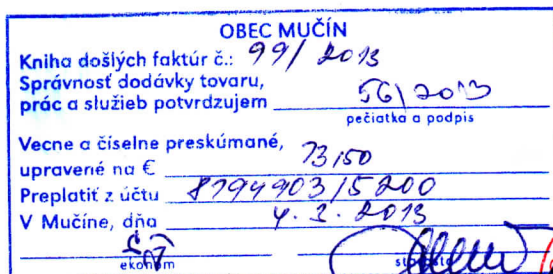 OBEC MUČÍN
Kniha došlých faktúr č.: 99/2013
Správnosť dodávky tovaru,
prác a služieb potvrdzujem 56/2013
pečiatka a podpis
Vecne a číselne preskúmané,
upravené na € 73,50
Preplatiť z účtu 8794903/5200
V Mučíne, dňa 4.3.2013
ekonóm starosta